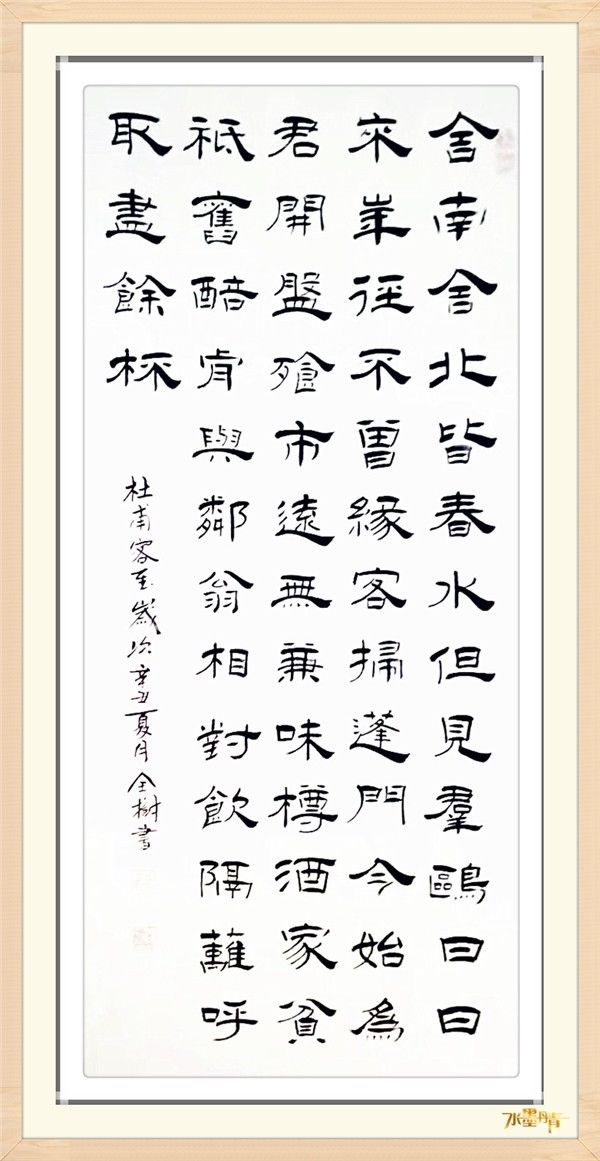 舍南舍北皆春水但見羣鷗日日
來華徑不曾緣客掃蓬門今始為
君開盤飧市遠無兼味樽酒家貧
祗舊醅肯與鄰翁相對飲隔籬呼
取盡餘杯
杜甫客至歲次辛丑夏月全樹書
水墨丹青